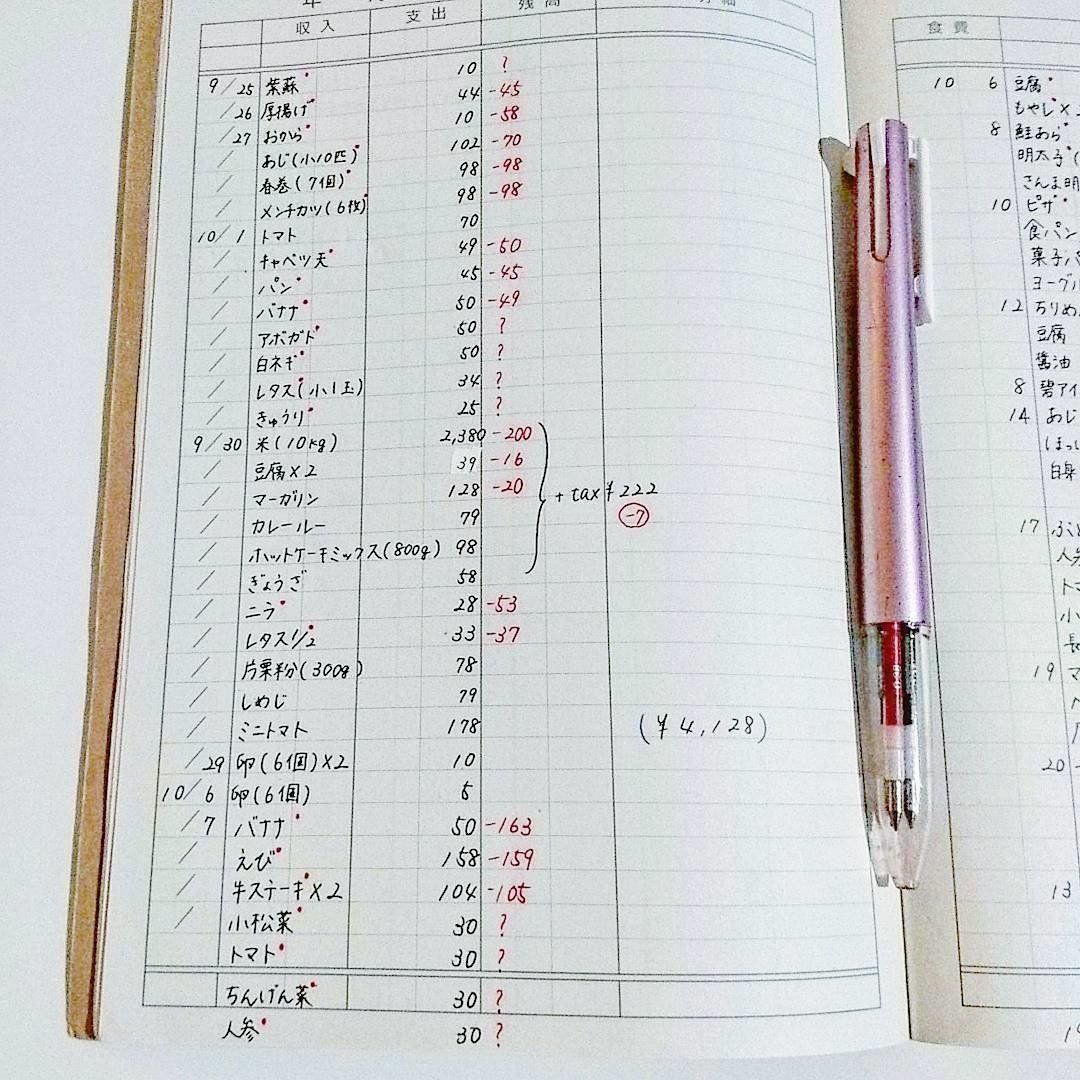 年
収入 支出 残高 明細
9/25 紫蘇 10 ?
/26 厚揚げ 44 -45
/27 おから 10 -58
/ あじ(小10匹) 102 -70
/ 春巻(7個) 98 -98
/ メンチカツ(6枚) 98 -98
10/1 トマト 70
/ キャベツ天 49 -50
/ パン 45 -45
/ バナナ 50 -49
/ アボガド 50 ?
/ 白ネギ 50 ?
/ レタス(小1玉) 34 ?
/ きゅうり 25 ?
9/30 米(10kg) 2,380 -200
/ 豆腐×2 39 -16
/ マーガリン 128 -20 + tax ¥222
/ カレールー 79 -7
/ ホットケーキミックス(800g) 98
/ ぎょうざ 58
/ ニラ 28 -53
/ レタス1/2 33 -37
/ 片栗粉(300g) 78
/ しめじ 79
/ ミニトマト 178 (¥4,128)
/29 卵(6個)×2 10
10/6 卵(6個) 5
/7 バナナ 50 -163
/ えび 158 -159
/ 牛ステーキ×2 104 -105
/ 小松菜 30 ?
トマト 30 ?
ちんげん菜 30 ?
人参 30 ?
食費
10 6 豆腐
もやし×
8 鮭あら
明太子(
さんま明
10 ピザ
食パン
菓子パ
ヨーグル
12 ちりめ
豆腐
醤油
8 碧アイ
14 あじ
ほっ
白身
17 ぶ
人参
ト
小
長
19 マ
20
13